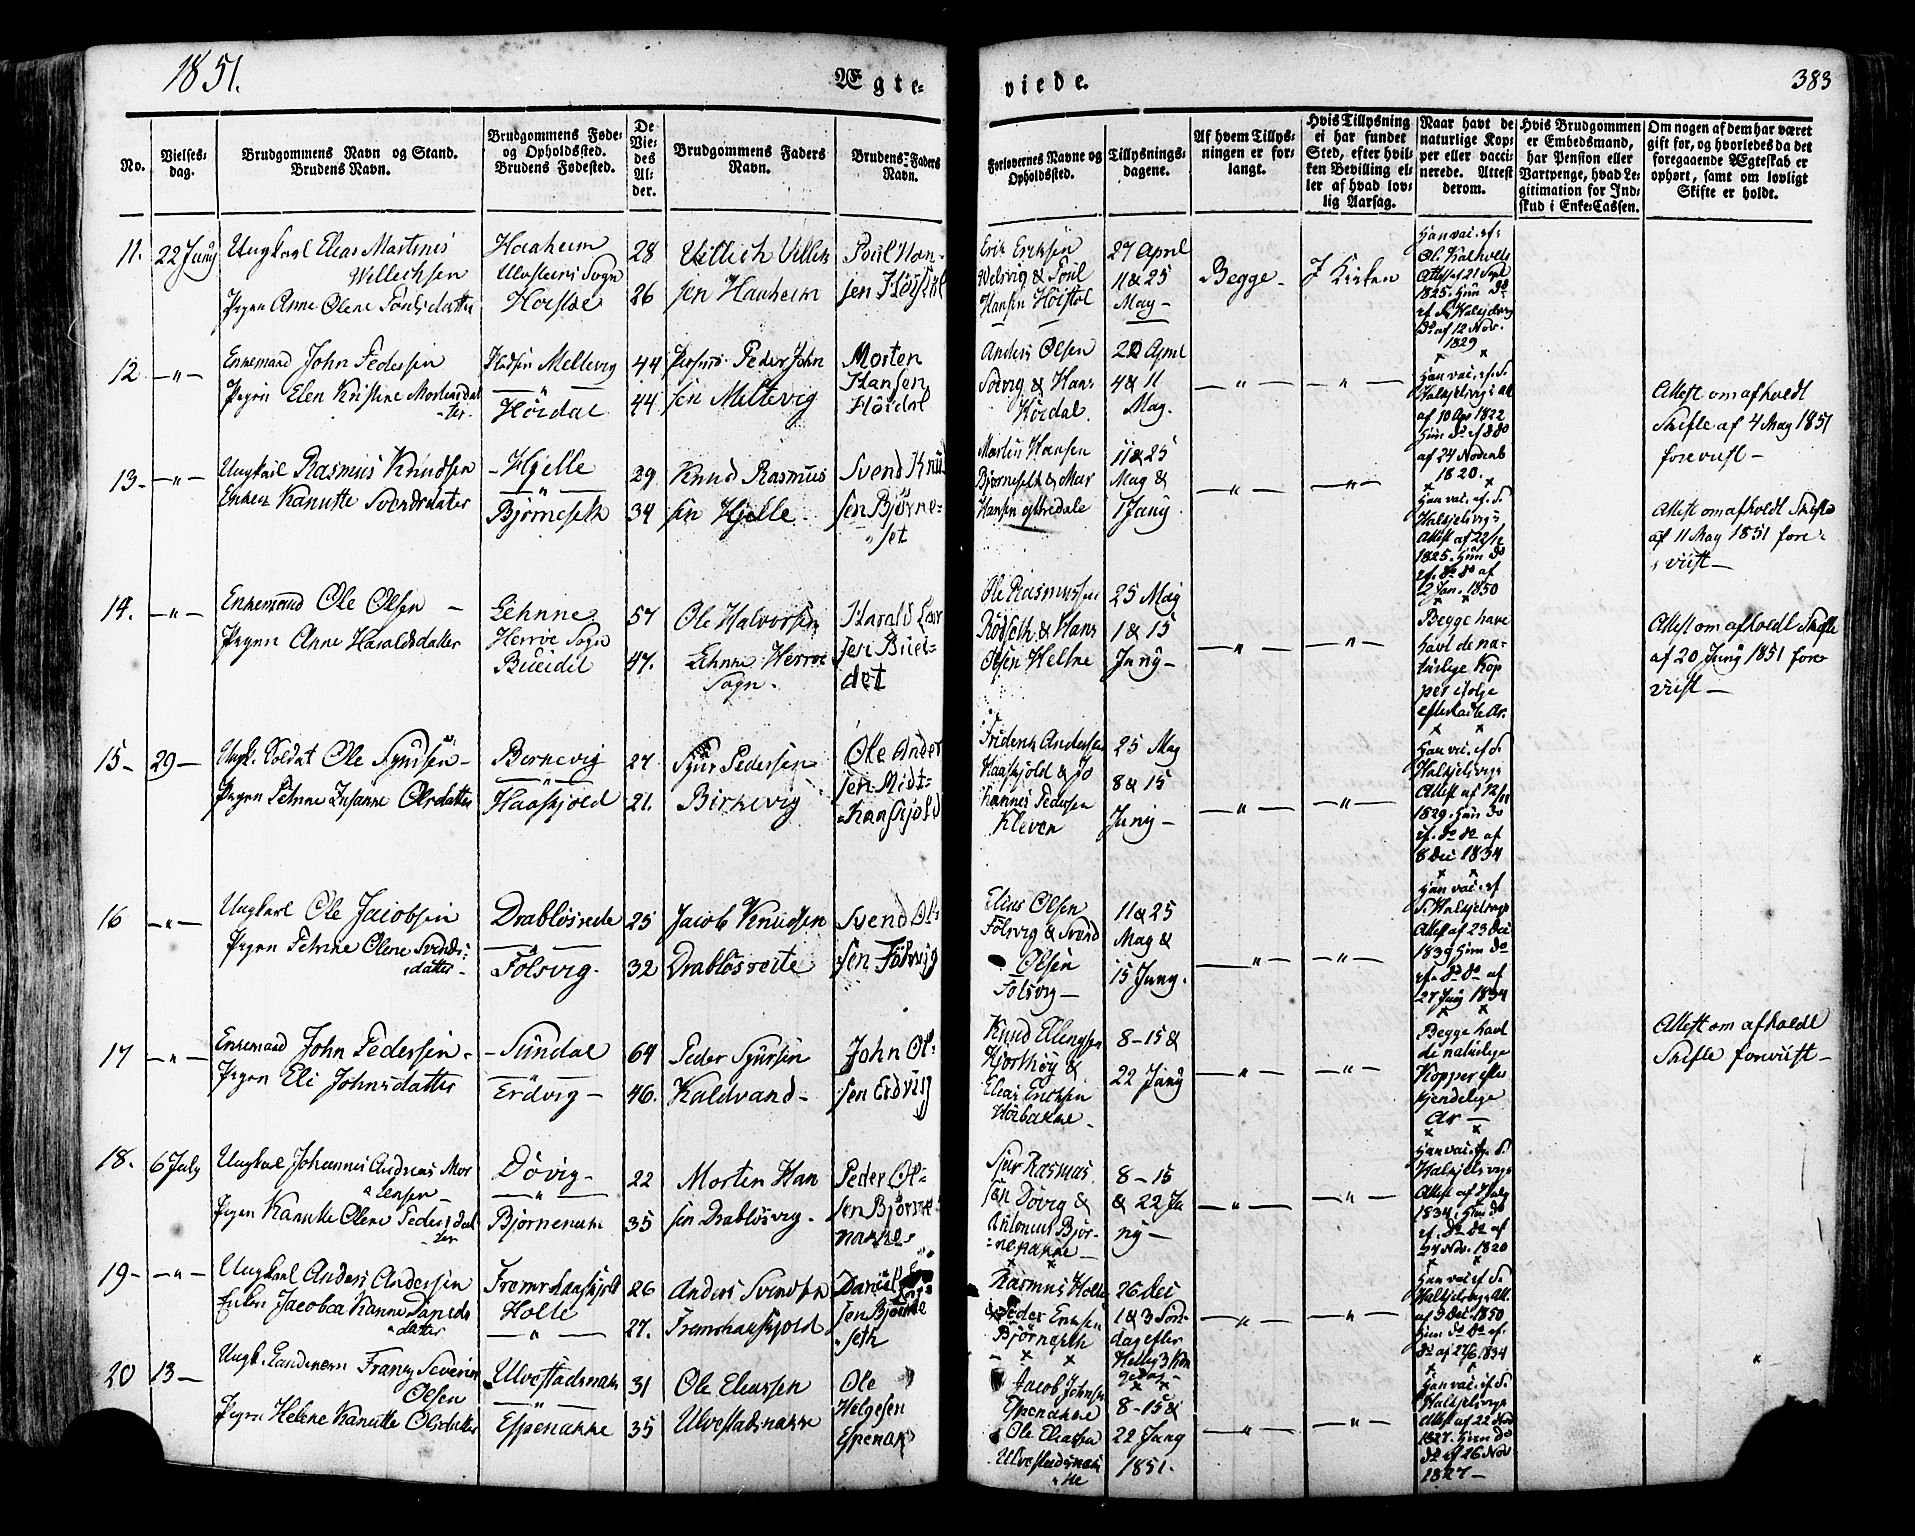 1851.
Ægte-
viede.
383
No.
Vielses-
dag.
Brudgommens Navn og Stand.
Brudens Navn.
Brudgommens Føde-
og Opholdssted.
Brudens Fødested.
De
Vie-
des
Al-
der.
Brudgommens Faders
Navn.
Brudens Faders
Navn.
Forlovernes Navne og
Opholdssted.
Tillysnings-
dagene.
Af hvem Tillys-
ningen er for-
langt.
Hvis Tillysning
ei har fundet
Sted, efter hvil-
ken Bevilling el-
ler af hvad lov-
lig Aarsag.
Naar havt de
naturlige Kop-
per eller vacci-
nerede. Attest
derom.
Hvis Brudgommen
er Embedsmand,
har Pension eller
Vartpenge, hvad Le-
gitimation for Ind-
skud i Enke-Cassen.
Om nogen af dem har været
gift før, og hvorledes da det
foregaaende Ægteskab er
ophørt, samt om lovligt
Skifte er holdt.
11. 22 Juny
Ungkarl Elias Martinus
Willechsen
Pigen Anne Olene Poulsdatter
Haaheim
Ulfsteens Sogn
28
26
Villich Villik
sen Haaheim
Poul Han-
sen Høistøl
Erik Eriksen
Welsvig & Poul
Hansen Høistøl
27 April
11 & 25
May -
Begge - I Kirken
Attest 21 Sept
1825. Hun do
af 12 Nov.
1829
12 - " -
Enkemand John Pedersen
Pigen Elen Kristine Mortensdat
ter.
Meltevig
- " -
Hörda
44
44
Peder John
sen Meltevig
Morten
Hansen
Hördal
Anders Olsen
Solvig & Hans
Hördal
20 April
4 & 11
May.
- " - - " -
af 10 Apr 1822
Hun do
af 24 Novemb
1820.
Attest om afholdt
Skifte af 4 May 1851
foreviist -
13 - " -
Ungkarl Rasmus Knudsen
Enken Kanutte Svendsdatter
- Hjelle
- " -
Bjørneseth
29
34
Knud Rasmus
sen Hjelle
Svend Knud
sen Bjørne-
set
Martin Hansen
Bjørneseth & Mar
Hansen
11 & 25
May &
1 Juny.
- " - - " -
Attest af 22/12
1825. Hun do
af
2 Jan. 1850
Attest om afholdt Skifte
af 11 May 1851 fore-
viist -
14. - " -
Enkemand Ole Olsen -
Pigen Anne Haraldsdatter
Lehnne
Herröe Sogn
57
47.
Ole Halvorsen
Lehnne Herröe
Sogn.
Harald Lar
sen Buei-
det
Ole Rasmussen
Rödseth & Hans
Olsen Heltne
25 May
1 & 15
Juny -
- " - - " -
Begge have
havt de na-
turlige Kop
per ifølge
efterladte Ar.
Attest om afholdt Skifte
af 20 Juny 1851 fore-
viist -
15 - 29 -
Ungk. Soldat Ole Sjursen -
Pigen Petrine Susanne Olsdatter
- " -
Haaskjold
27
21.
Sjur Pedersen
Birkevig
Ole Ander
sen Midt-
Haaskjold
Friderik Andersen
Haaskjold & Jo
hannes Pedersen
Kleven
25 May
8 & 15
Juny -
- " - - " -
Attest af 12/11
1829. Hun do
8 Dec 1834
16 - " -
Ungkarl Ole Jacobsen
Pigen Petrine Olene Svends-
datter -
Drabløsrede
- " -
Følsvig -
25
32
Jacob Knudsen
Drabløsreite
Svend Ol-
sen Følsvig
Elias Olsen
Følsvig & Svend
Olsen
Følsvig -
11 & 25
May &
15 Juny.
- " - - " -
Attest af 23 Dec
1839 Hun do
27 July 1834
17 - " -
Enkemand John Pedersen -
Pigen Eli Johnsdatter
- Sundal
- " -
Erdvig -
64
46.
Peder Sjursen
Kaldvand -
John Ol-
sen Erdvig
Knud Ellingsen
Hjorthøy &
Elias Ericksen
8 - 15 &
22 Juny
- " - - " -
Begge havt
de naturlige
Kopper efter
kjendelige
Ar -
Attest om afholdt
Skifte foreviist -
18. 6 July
Ungkarl Johannes Andreas Mor
tensen -
Pigen Kanutte Olene Pedersdat
ter
Dövig -
- " -
22
35
Morten Han
sen Drabløsvig -
Peder Ol-
sen Bjørne-
nakke -
Sjur Rasmus
sen Dövig &
Antonius Bjør-
nenakke -
8 - 15
& 22 Ju
ny -
- " - - " -
1834. Hun do
24 Nov. 1820
19 - - " -
Ungkarl Anders Andersen
datter
Holle
- " -
26
27.
Anders Svendsen
Daniel
seth
Rasmus Holle
& Peder
Bjørneseth
26 Dec
1 & 3 Søn-
dag efter
Hellig 3 Kon
gedag -
- " - - " -
af 3 Dec. 1850
Hun do
af 27/6 1834
20 13 -
Frantz Severin
Olsen
Pigen Helene Kanutte Olsdatter
Ulvestadsnakk
- " -
Espenakke
31
35
Ole Eliassen
Ulvestadsnakke
Ole
Helgesen
Espenak
Jacob Johnsen
Espenakke
Ole Eliassen
Ulvestadsnak
ke
8 - 15 &
22 Juny
1851.
- " - - " -
Attest af 22 Nov
1827. Hun do
do af 26 Nov
1827 -